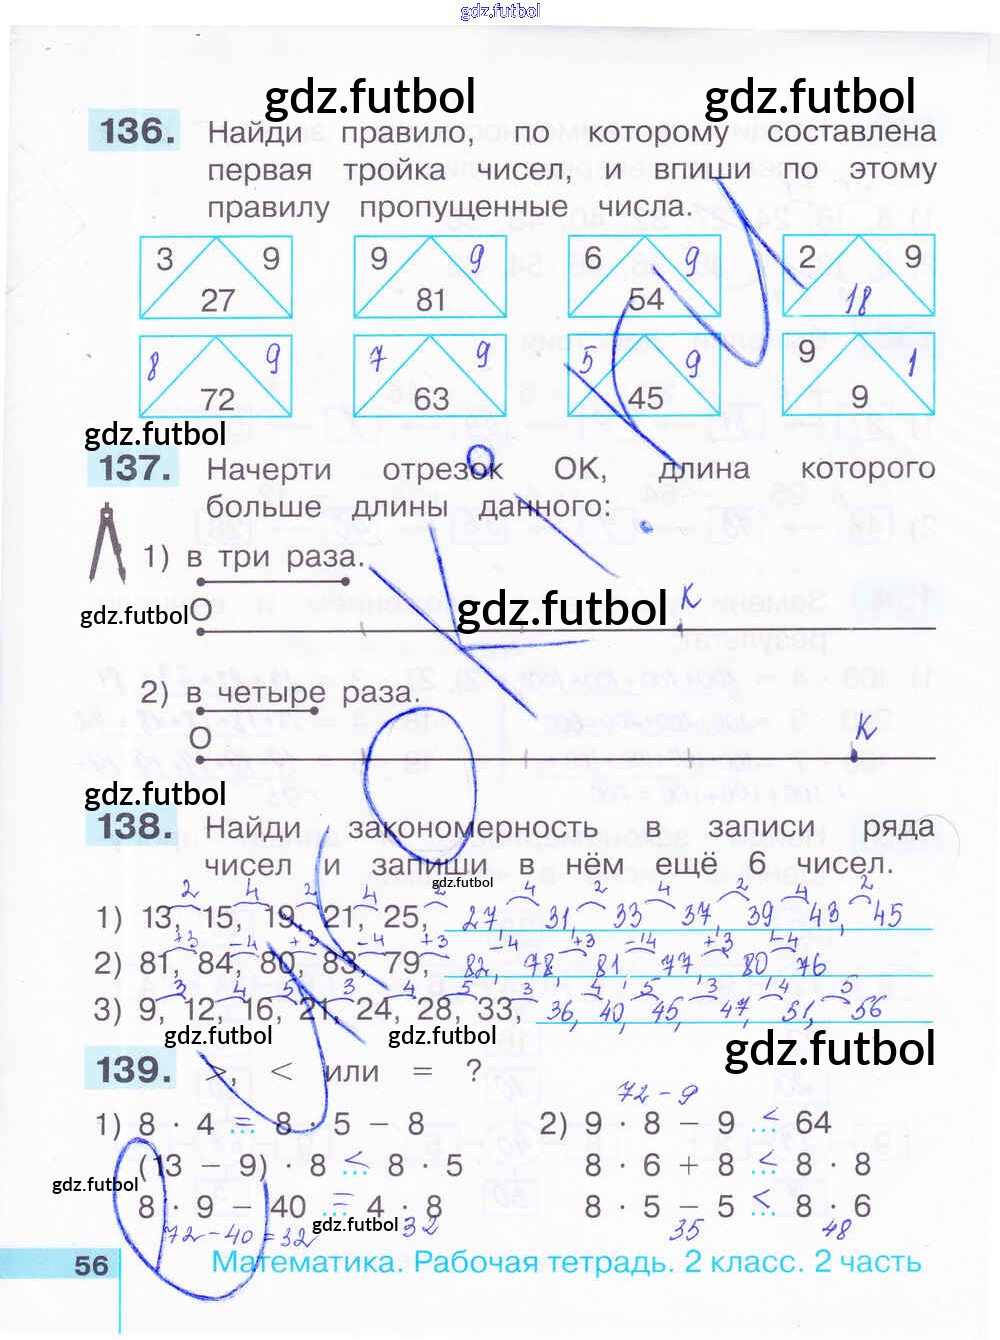 gdz.futbol
gdz.futbol gdz.futbol
136. Найди правило, по которому составлена
первая тройка чисел, и впиши по этому
правилу пропущенные числа.
3 9 9 9 6 9 2 9
27 81 54 18
8 9 7 9 5 9 9 1
72 63 45 9
gdz.futbol
137. Начерти отрезок ОК, длина которого
больше длины данного:
1) в три раза.
gdz.futbol О gdz.futbol К
2) в четыре раза.
О К
gdz.futbol
138. Найди закономерность в записи ряда
чисел и запиши в нём ещё 6 чисел.
gdz.futbol
2 4 2 4 2 4 2 4 2 4 2
1) 13, 15, 19, 21, 25, 27, 31, 33 37, 39 43, 45
+3 -4 +3 -4 +3 -4 +3 -4 +3 -4
2) 81, 84, 80, 83, 79, 82, 78 81 77, 80 76
3 4 5 3 4 5 3 4 5 3 4 5
3) 9, 12, 16, 21, 24, 28, 33, 36, 40, 45, 47, 51, 56
gdz.futbol gdz.futbol gdz.futbol
139. >, < или = ?
72-9
1) 8 · 4 = 8 · 5 − 8 2) 9 · 8 − 9 < 64
(13 − 9) · 8 < 8 · 5 8 · 6 + 8 < 8 · 8
gdz.futbol
8 · 9 − 40 = 4 · 8 8 · 5 − 5 < 8 · 6
72-40=32 gdz.futbol 32 35 48
56 Математика. Рабочая тетрадь. 2 класс. 2 часть